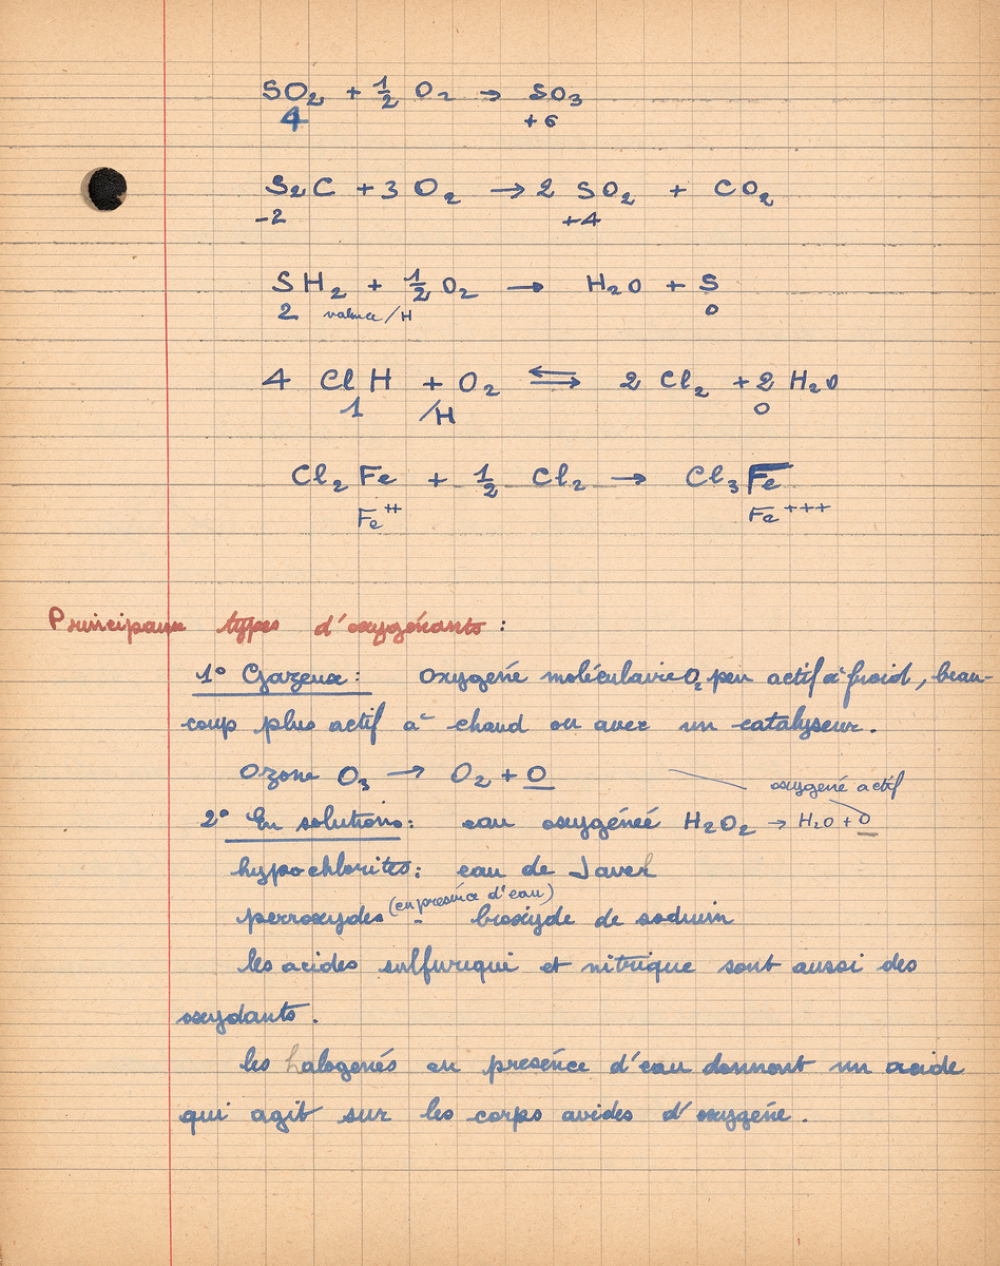 SO₂ + 1/2 O₂ → SO₃
4 +6
S₂C + 3 O₂ → 2 SO₂ + CO₂
-2 +4
SH₂ + 1/2 O₂ → H₂O + S
2 valence /H 0
4 ClH + O₂ ⇌ 2 Cl₂ + 2 H₂O
1 /H 0
Cl₂Fe + 1/2 Cl₂ → Cl₃Fe
Fe⁺⁺ Fe⁺⁺⁺
Principaux types d'oxygénants :
1° Gazeux : oxygéné moléculaire O₂ peu actif à froid, beau-
coup plus actif à chaud ou avec un catalyseur.
Ozone O₃ → O₂ + O
oxygené actif
2° En solutions : eau oxygénéé H₂O₂ → H₂O + O
hypochlorites : eau de Javel
(en presence d'eau)
perroxydes - bioxyde de sodium
les acides sulfurique et nitrique sont aussi des
oxydants.
les halogenés en presénce d'eau donnent un acide
qui agit sur les corps avides d'oxygéne.